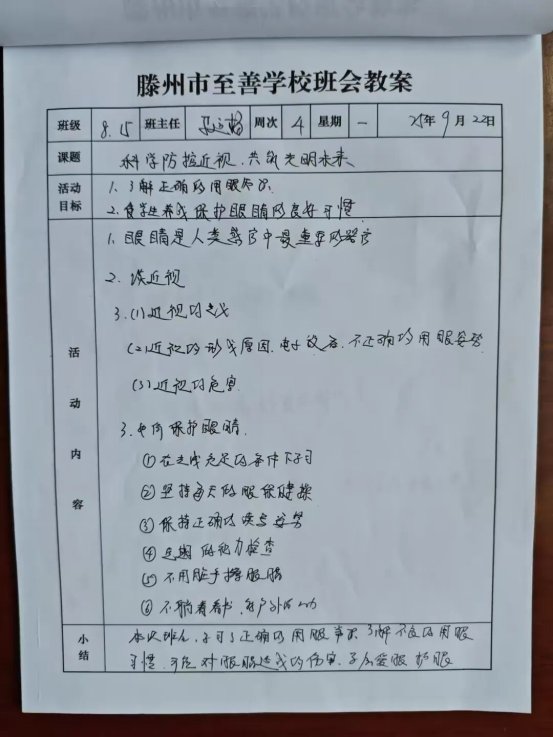 滕州市至善学校班会教案
班级 8.15 班主任 周次 4 星期 一 25年9月22日
课题 科学防控近视.共筑光明未来
活动目标 1.了解正确的用眼知识
2.使学生养成保护眼睛的良好习惯
活动内容 1.眼睛是人类感官中最重要的器官
2.谈近视
3.(1)近视的定义
(2)近视的形成原因.电子放.不正确的用眼姿势
(3)近视的危害
3.如何保护眼睛.
①在光线充足的条件下学习
②坚持每天的眼保健操
③保持正确的读写姿势
④定期的视力检查
⑤不用脏手揉眼睛
⑥不躺着看书,户外活动
小结 本次班会,学习了正确的用眼知识 了解不良的用眼
习惯.对眼睛造成的伤害.学会爱眼护眼